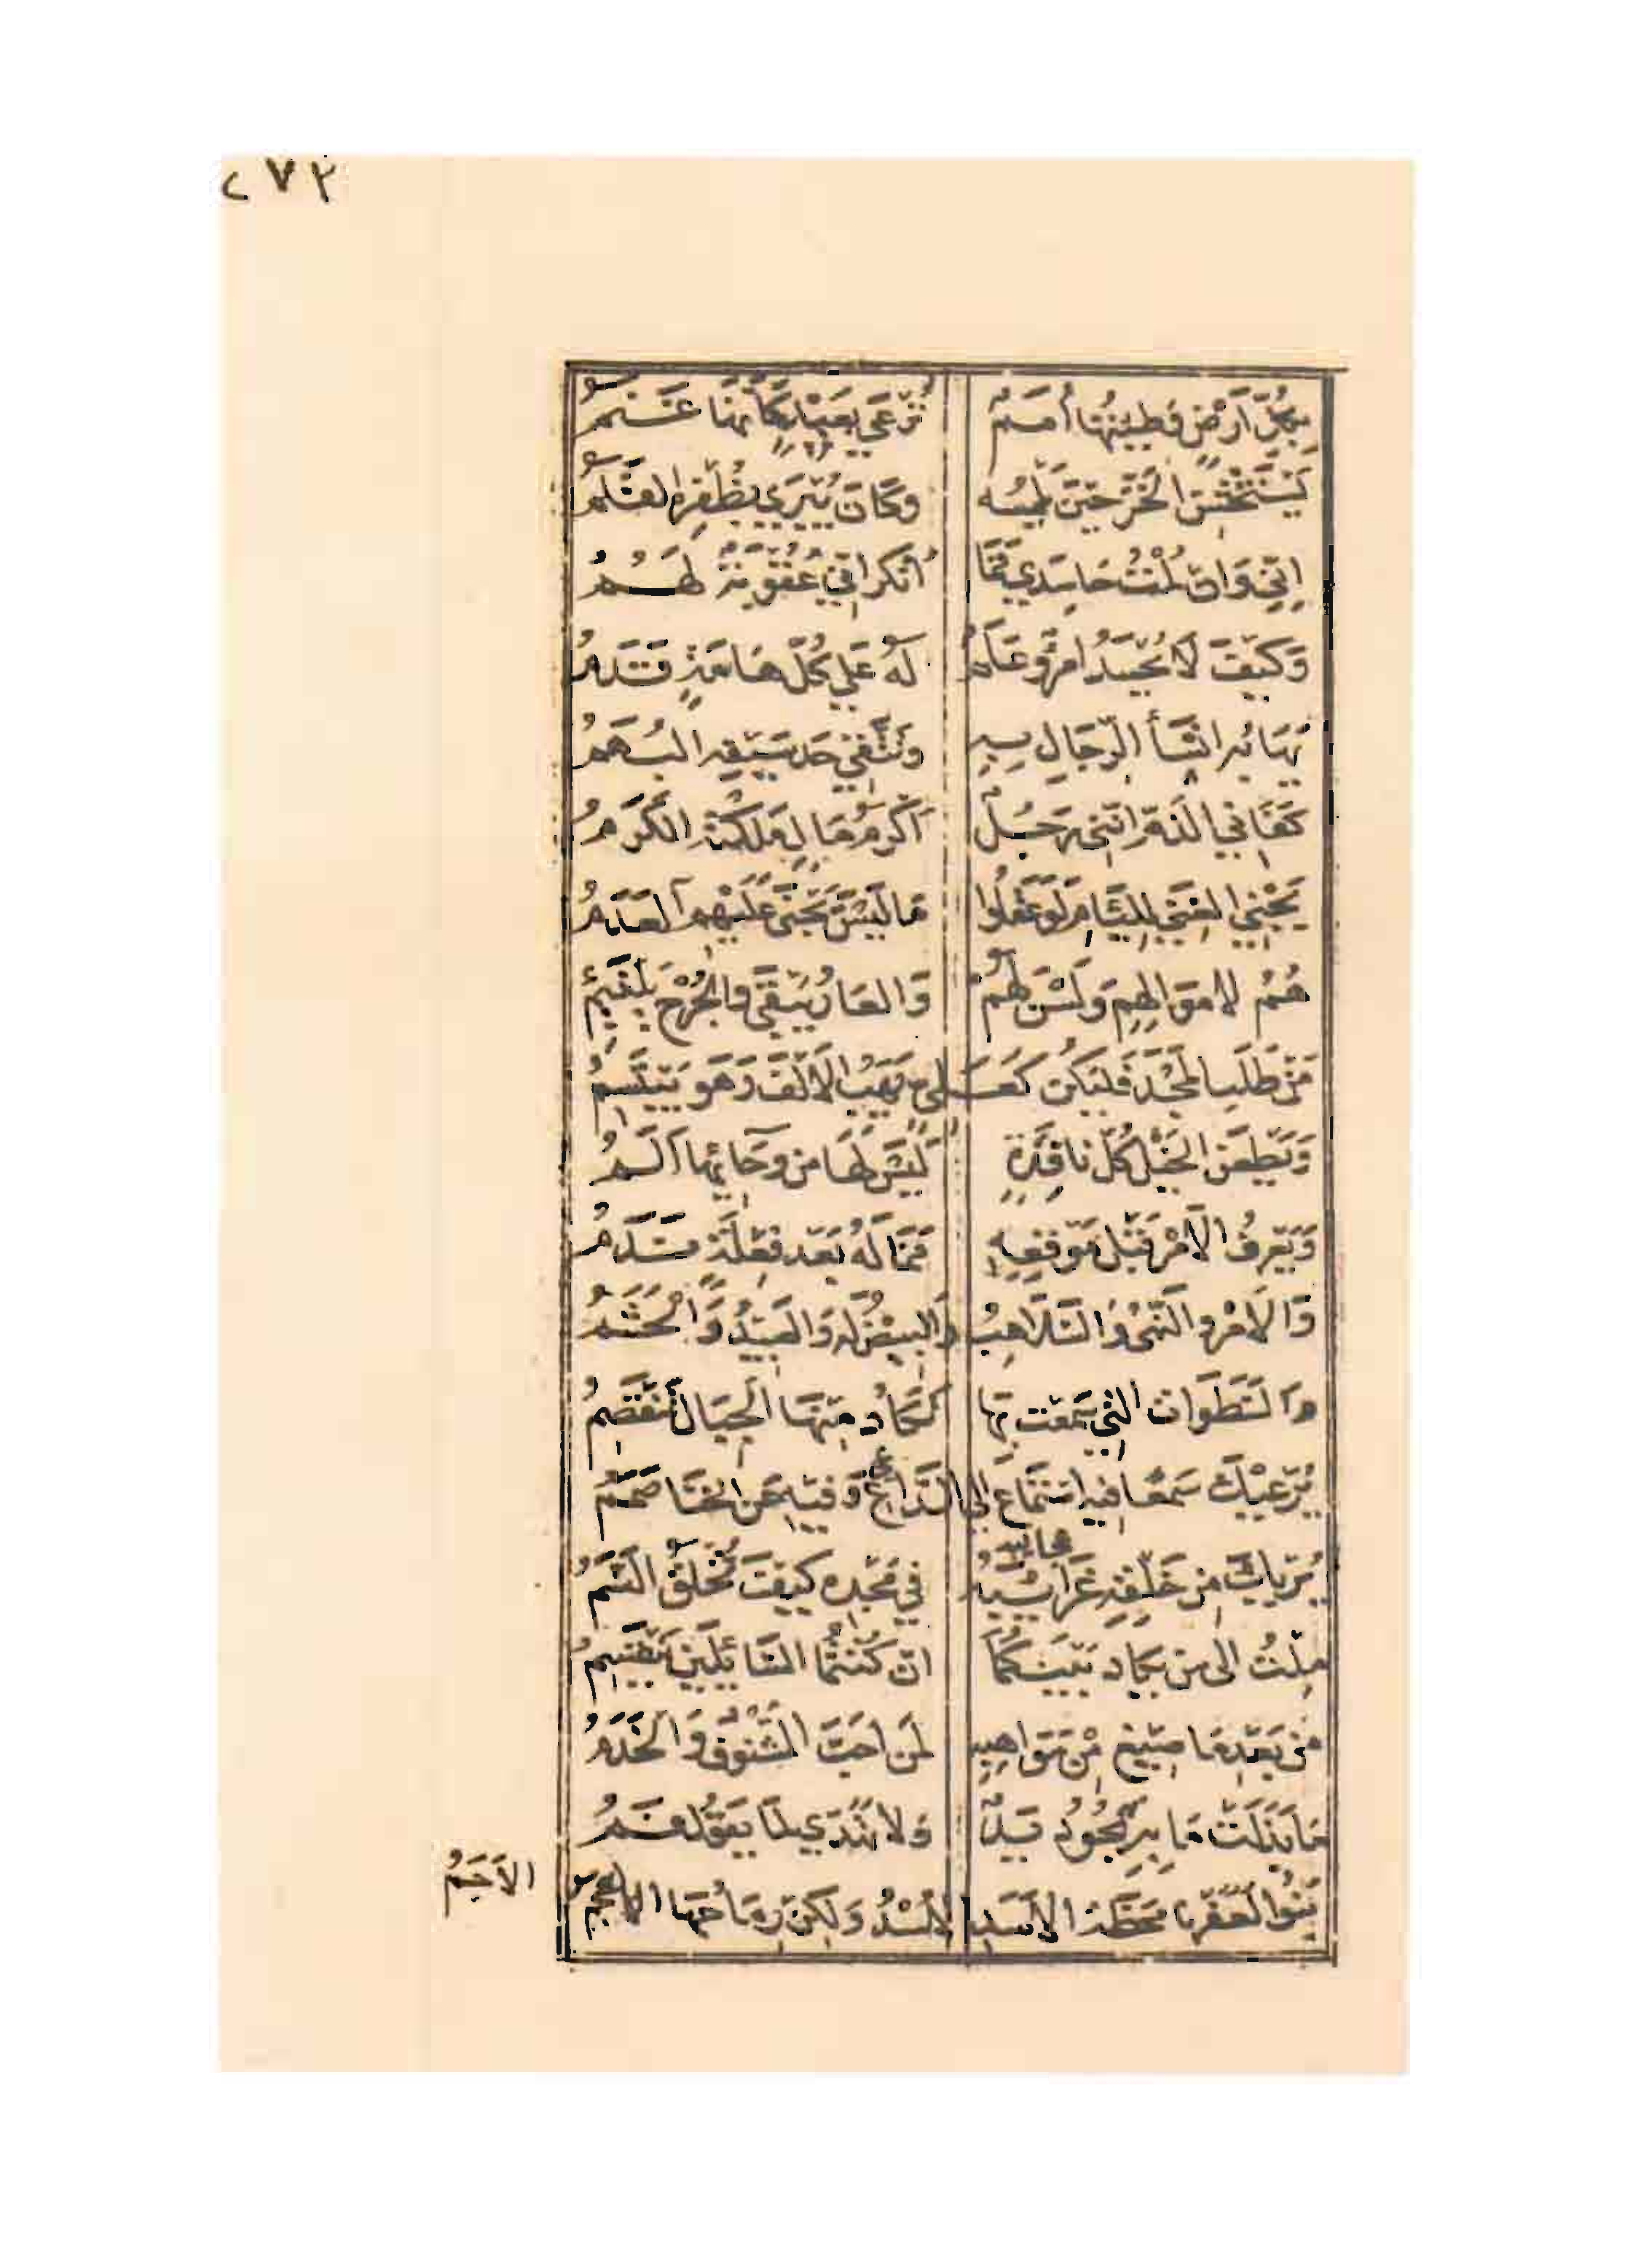 ٢٧٣
بِكُلِّ أَرْضٍ وَطِئْتُهَا أُمَمٌ تُرْعَى بِعَبْدٍ كَأَنَّهَا غَنَمُ
يَسْتَخْشِنُ الخَزَّ حِيْنَ يَلْمِسُه وَكَانَ يُبْرَى بِظُفْرِهِ القَلَمُ
اِنِّي وَاِنْ لُمْتُ حَاسِدِيَّ فَمَا أُنْكِرُ اَنِّي عُقُوْبَةٌ لَهُمُ
وَكَيْفَ لَا يُحْسَدُ امْرُؤٌ عَلَمٌ لَهُ عَلَى كُلِّ هَامَةٍ قَدَمُ
يَهَابُهُ ابْسَأُ الرِّجَالِ بِهِ وَتَتَّقِي حَدَّ سَيْفِهِ البُهَمُ
كَفَانِيَ الذَمَّ اَنَّنِي رَجُلٌ اَكْرَمُ مَالٍ مَلَكْتُهُ الكَرَمُ
يَجْنِي الغِنَى لِلِّئَامِ لَوْ عَقَلُوا مَا لَيْسَ يَجْنِي عَلَيْهِمِ العَدَمُ
هُمُ لِامْوَالِهِمْ وَلَسْنَ لَهُمْ وَالعَارُ يَبْقَى وَالجُرْحُ يَلْتَئِمُ
مَنْ طَلَبَ المَجْدَ فَلْيَكُنْ كَعَلِيٍّ يَهَبُ الاَلْفَ وَهْوَ يَبْتَسِمُ
وَيَطْعَنُ الخَيْلَ كُلَّ نَافِذَةٍ لَيْسَ لَهَا مِنْ وَحَائِهَا اَلَمُ
وَيَعْرِفُ الاَمْرَ قَبْلَ مَوْقِعِهِ فَمَا لَهُ بَعْدَ فِعْلِهِ نَدَمُ
وَالاَمْرُ وَالنَّهْيُ وَالسَّلَاهِبُ وَالبِيْضُ لَهُ وَالعَبِيْدُ وَالحَشَمُ
وَالسَّطَوَاتُ التِي سَمِعْتَ بِهَا تَكَادُ مِنْهَا الجِبَالُ تَنْقَصِمُ
يُرْعِيْكَ سَمْعًا فِيهِ اسْتِمَاعٌ اِلَى الدَّاعِي وَفِيْهِ عَنِ الخَنَا صَمَمُ
يُرِيْكَ مِنْ خَلْقِهِ غَرَائِبَهُ فِي مَجْدِهِ كَيْفَ تُخْلَقُ النَّسَمُ
مِلْتُ اِلَى مَنْ يَكَادُ بَيْنَكُمَا اِنْ كُنْتُمَا السَّائِلَيْنِ يَنْقَسِمُ
مِنْ بَعْدِ مَا صِيْغَ مِنْ مَوَاهِبِهِ لِمَنْ اَحَبَّ الشُّنُوْفُ وَالخَدَمُ
مَا بَذَلَتْ مَا بِهِ يَجُوْدُ يَدٌ وَلَا تَهَدَّى لِمَا يَقُوْلُ فَمُ
بَنُوْ العَفَرْنَا مَحَطَّةَ الاَسَدِ الاُسْدُ وَلَكِنْ رِمَاحُهَا الاجم
الاَجَمُ